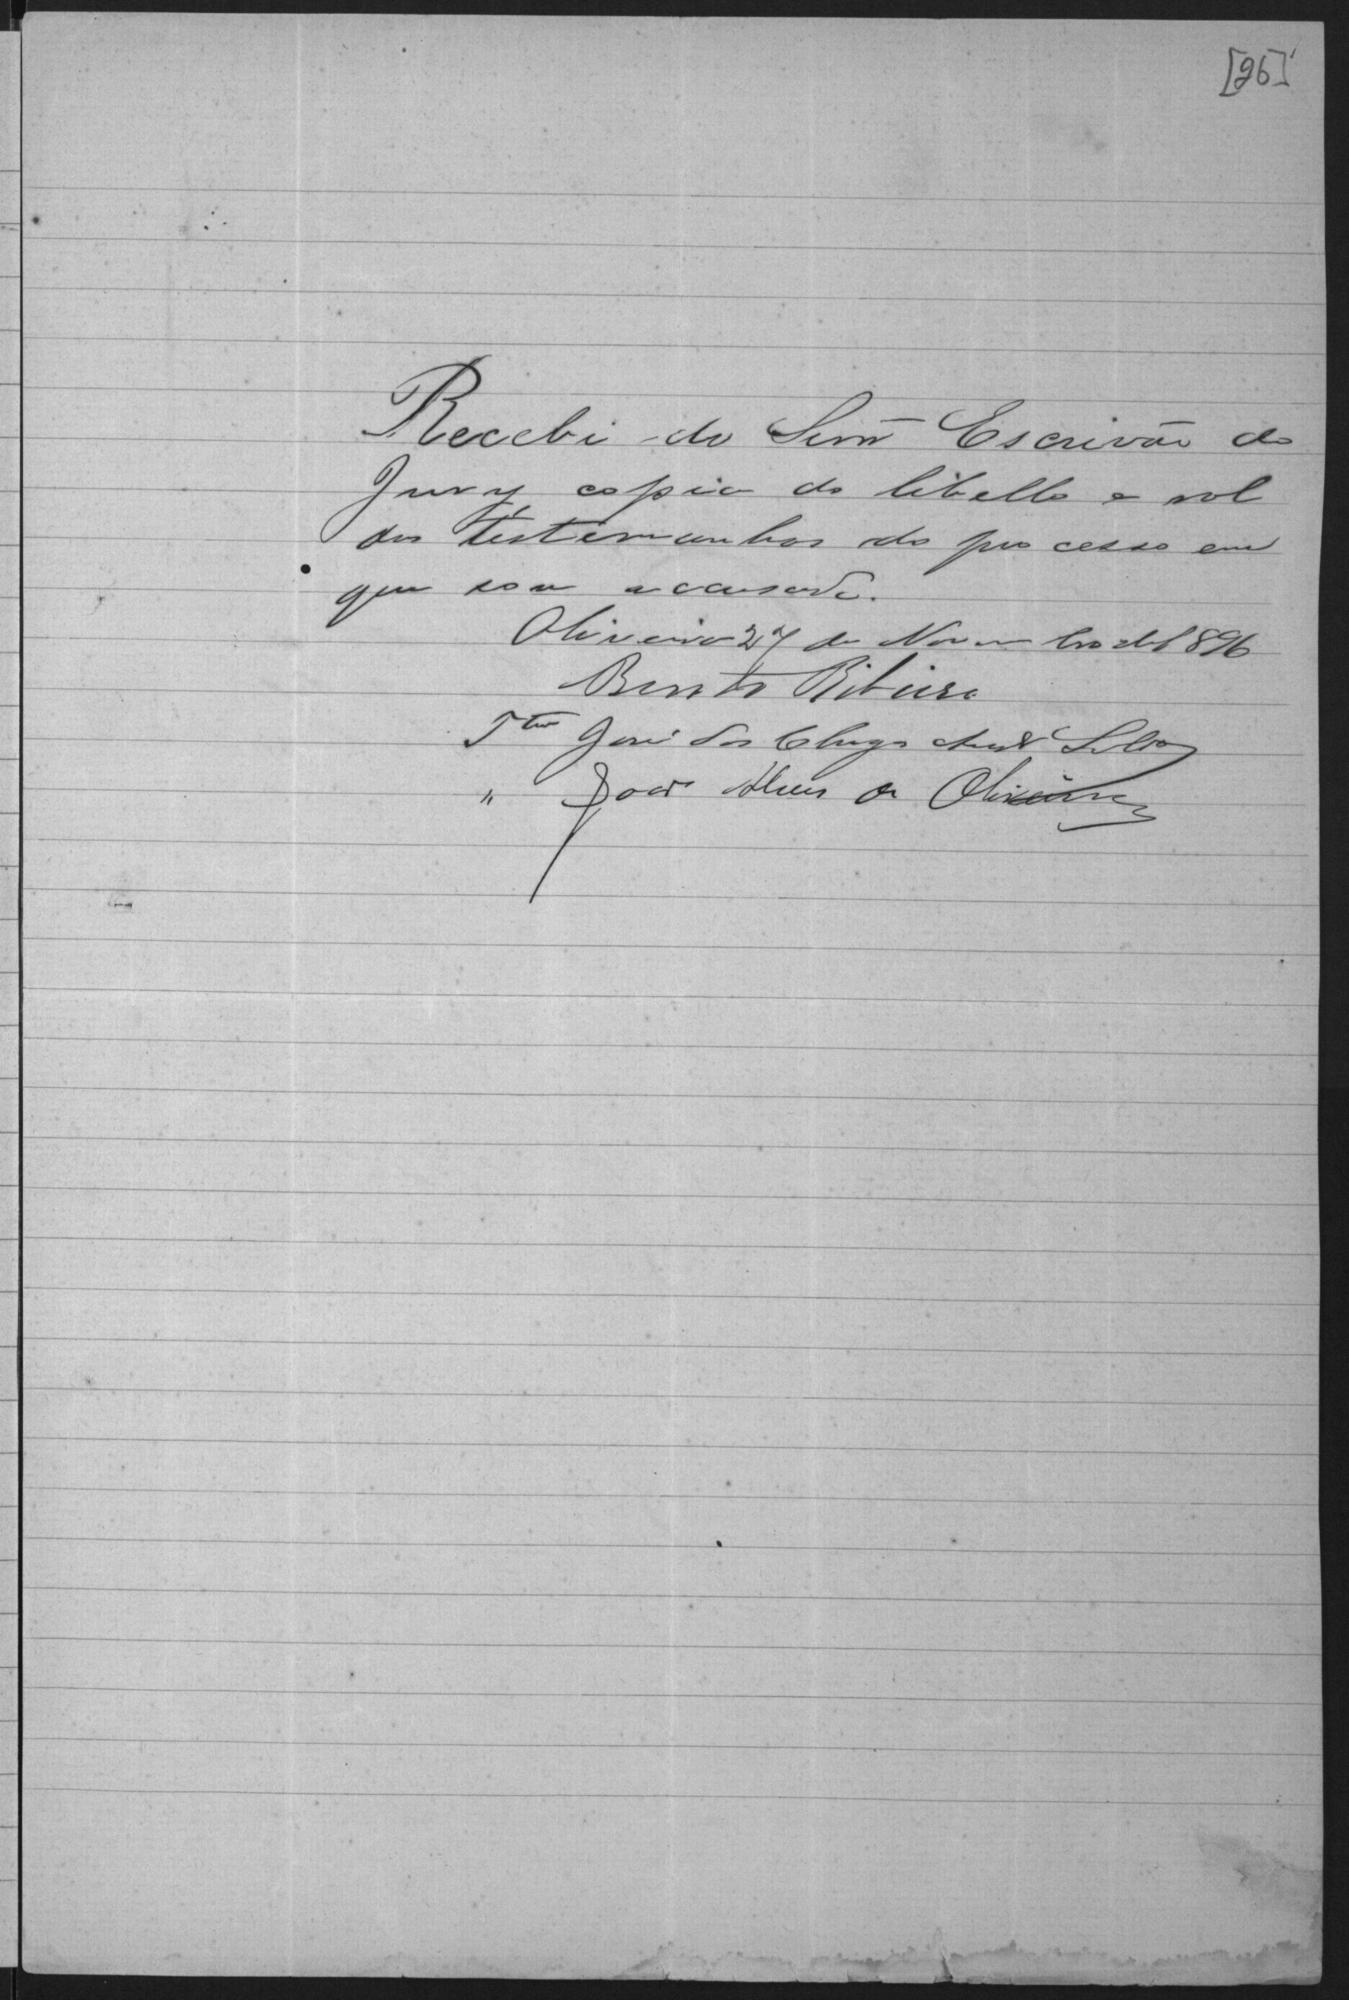 [26]
Recebi do Senr Escrivão do
Jury copia do libello e rol
das testemunhas do processo em
que sou accusado.
Oliveira 27 de Novembro de 1896
Bento Ribeiro
Ttas José das Silva
" João Alves de Oliveira